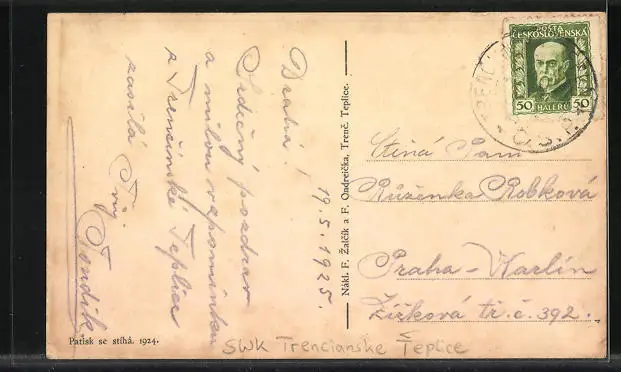 Drahá!
Srdečný pozdrav
a milou vzpomínkou
z Trenčínské Teplice
zasílá Tvůj
Tondík.
19.5.1925.
Nákl. F. Žalčík a F. Ondreička, Trenč. Teplice.
Patisk se stíhá. 1924.
POŠTA
ČESKOSLOVENSKÁ
50 HALÉŘŮ 50
Č.S.P.
Ctěná Paní
Růženka Robková
Praha-Karlín
Žižková tř. č. 392.
4
SWK Trencianske Teplice